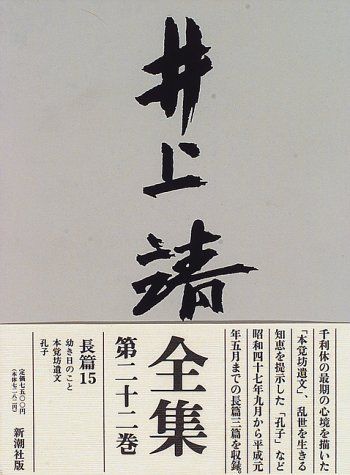 井上靖
全集
第二十二巻
千利休の最期の心境を描いた
「本覚坊遺文」、乱世を生きる
知恵を提示した「孔子」など
昭和四十七年九月から平成元
年五月までの長篇三篇を収録。
長篇15
幼き日のこと
本覚坊遺文
孔子
新潮社版
定価七五〇〇円